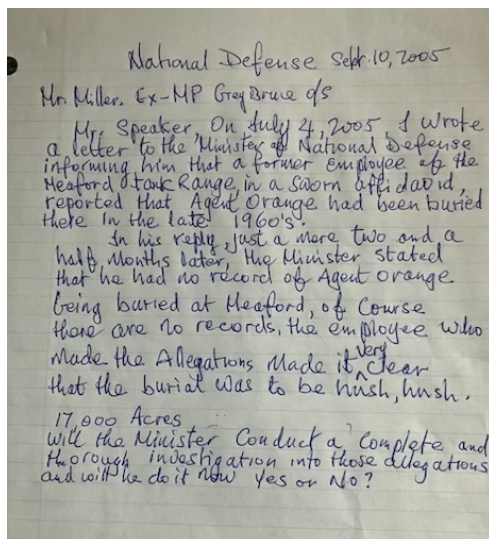 National Defense Sept. 10, 2005
Mr. Miller. Ex-MP Grey Bruce o/s
Mr. Speaker, On July 4, 2005, I wrote
a letter to the Minister of National Defense
informing him that a former employee of the
Meaford tank Range, in a sworn affidavid,
reported that Agent Orange had been buried
there in the late 1960's.
In his reply, just a mere two and a
half months later, the Minister stated
that he had no record of Agent orange
being buried at Meaford, of Course
there are no records, the employee who
Made the Allegations Made it very clear
that the burial was to be hush, hush.
17,000 Acres
will the Minister Conduct a Complete and
thorough investigation into those allegations
and will he do it now Yes or No?